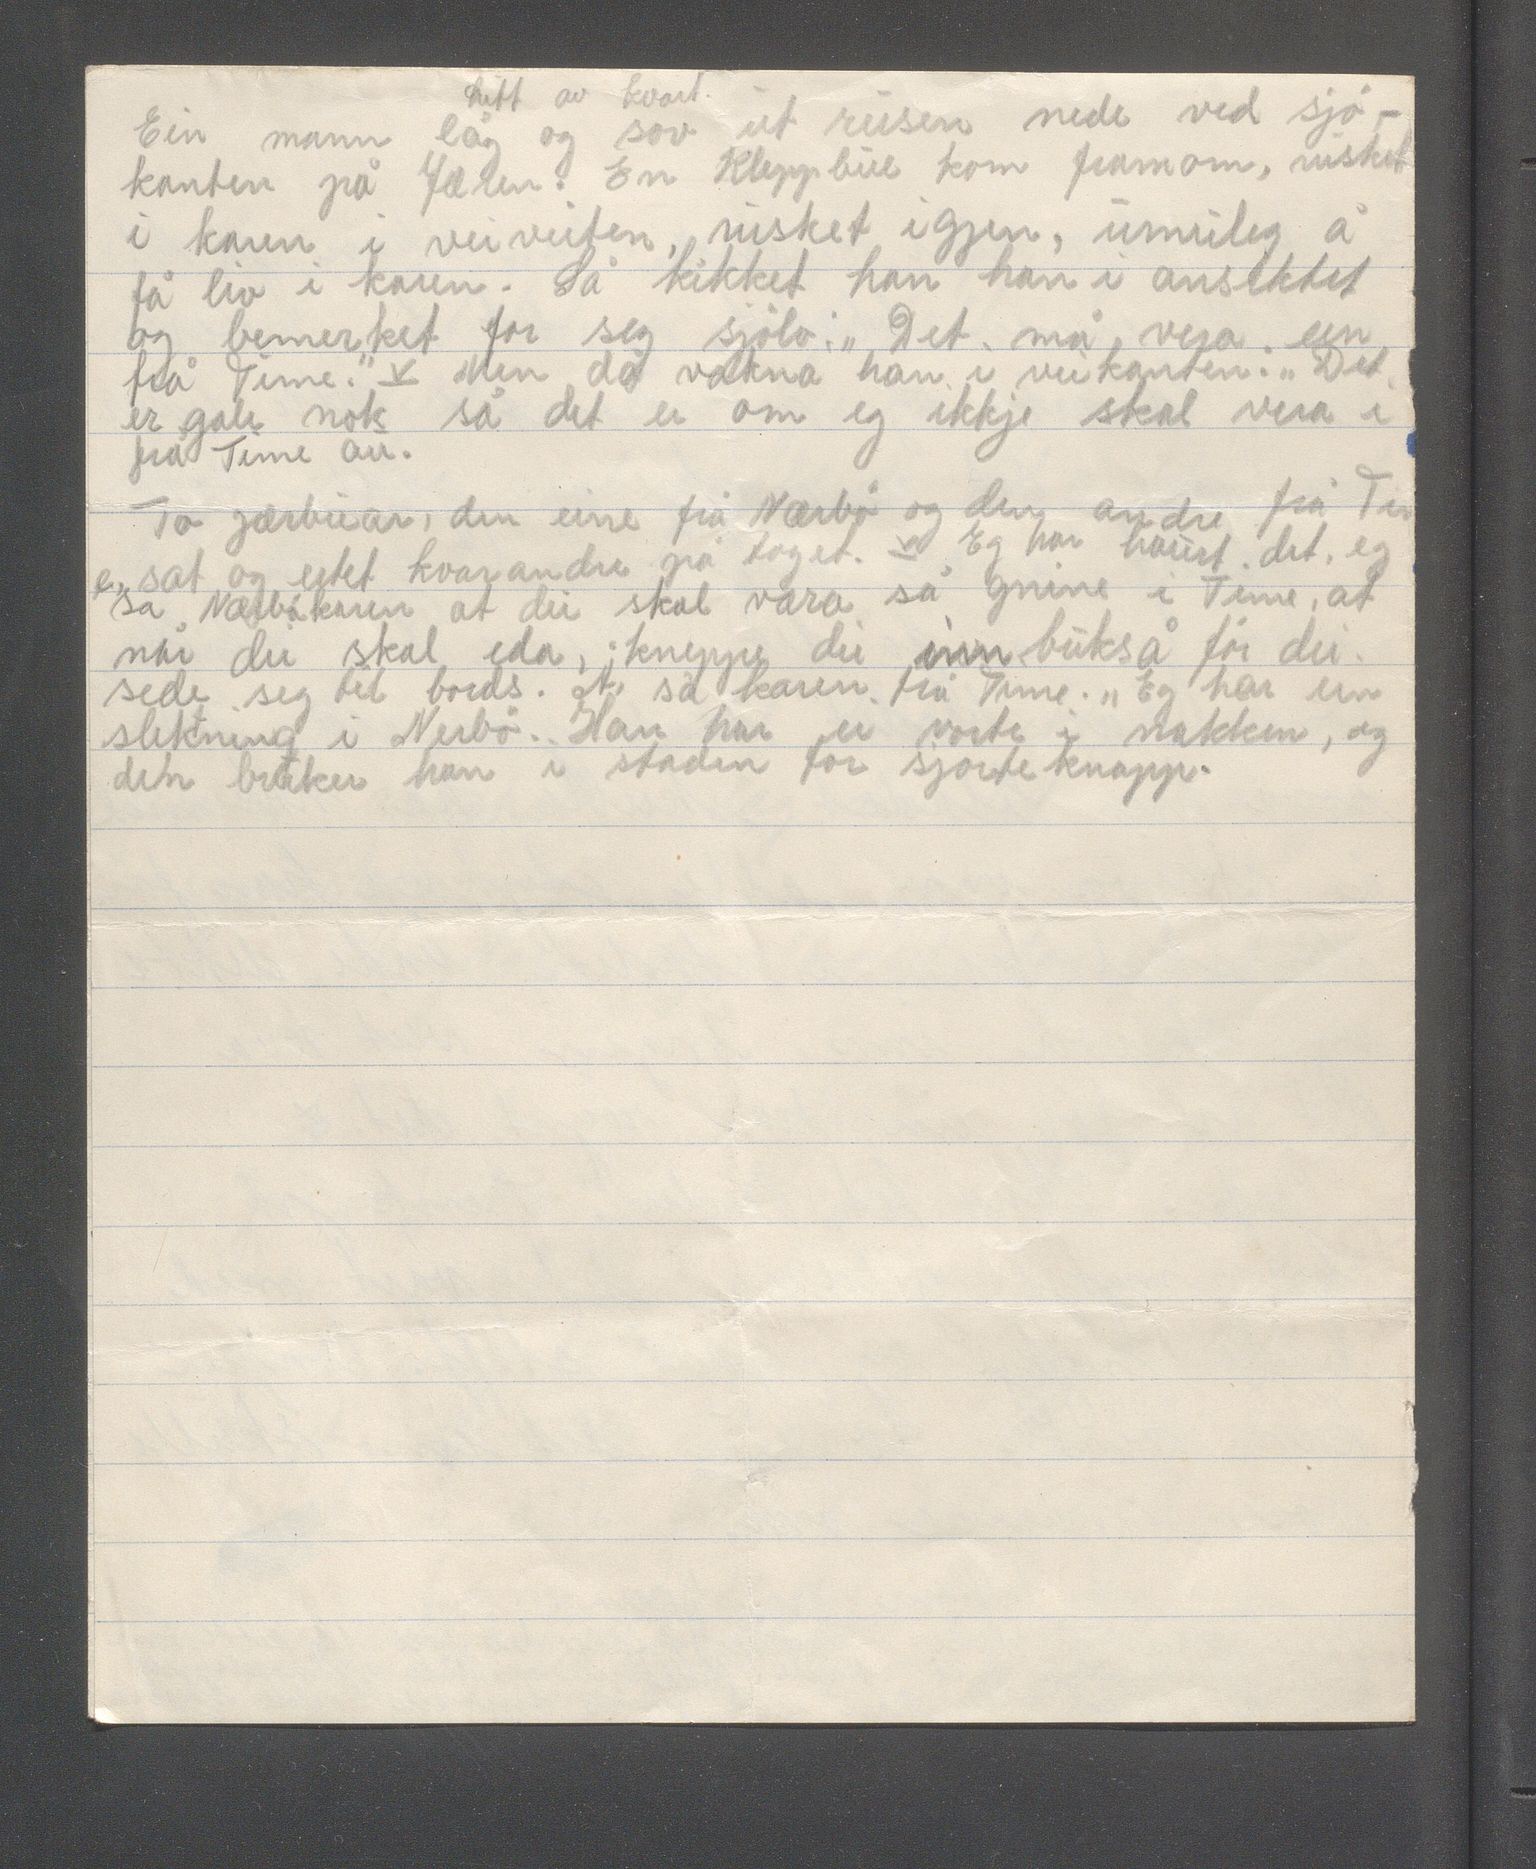 Litt av kvart.
Ein mann låg og sov ut rusen nede ved sjø-
kanten på Jæren. En Kleppbue kom framom, rusket
i karen i veiveiten, rusket igjen, umuleg å
få liv i karen. Så kikket han han i ansiktet
og bemerket for seg sjølv: „Det må vera een
frå Time." Men då vakna han i veikanten. „Det
er gale nok så det er om eg ikkje skal vera i
frå Time au.
To jærbuar, den eine frå Nærbø og den andre frå Tim
e, sat og ertet kvarandre på toget. Eg har haurt det, eg
sa Nærbøkaren at dei skal vara så gnine i Time, at
når dei skal eda, kneppe dei inn bukså får dei
sede seg til bords. Å, sa karen frå Time. „Eg har ein
slektning i Nerbø. Han har ei vorte i nakken, og
den bruker han i staden for sjorteknapp.